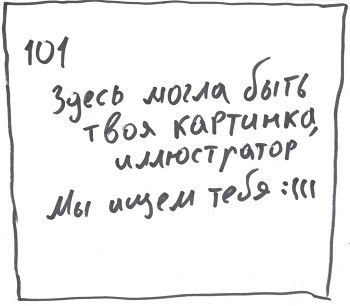 101
Здесь могла быть
твоя картинка,
иллюстратор
Мы ищем тебя :(((